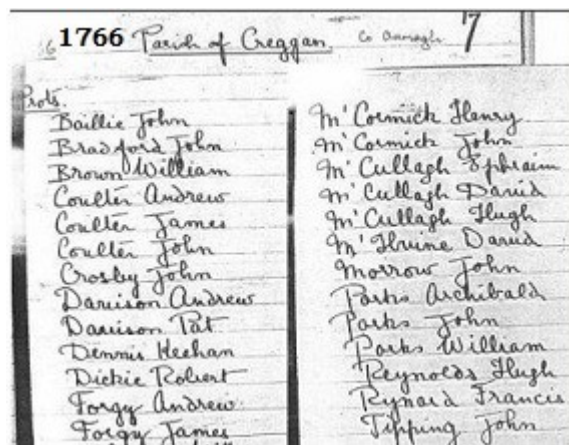 1766 Parish of Creggan. Co Armagh 17
Prots.
Baillie John
Bradford John
Brown William
Coulter Andrew
Coulter James
Coulter John
Crosby John
Davison Andrew
Davison Pat
Dennis Heehan
Dickie Robert
Forgy Andrew
Forgy James
McCormick Henry
McCormick John
McCullagh Ephraim
McCullagh David
McCullagh Hugh
McIlvine David
Morrow John
Parks Archibald
Parks John
Parks William
Reynolds Hugh
Rynard Francis
Tipping John